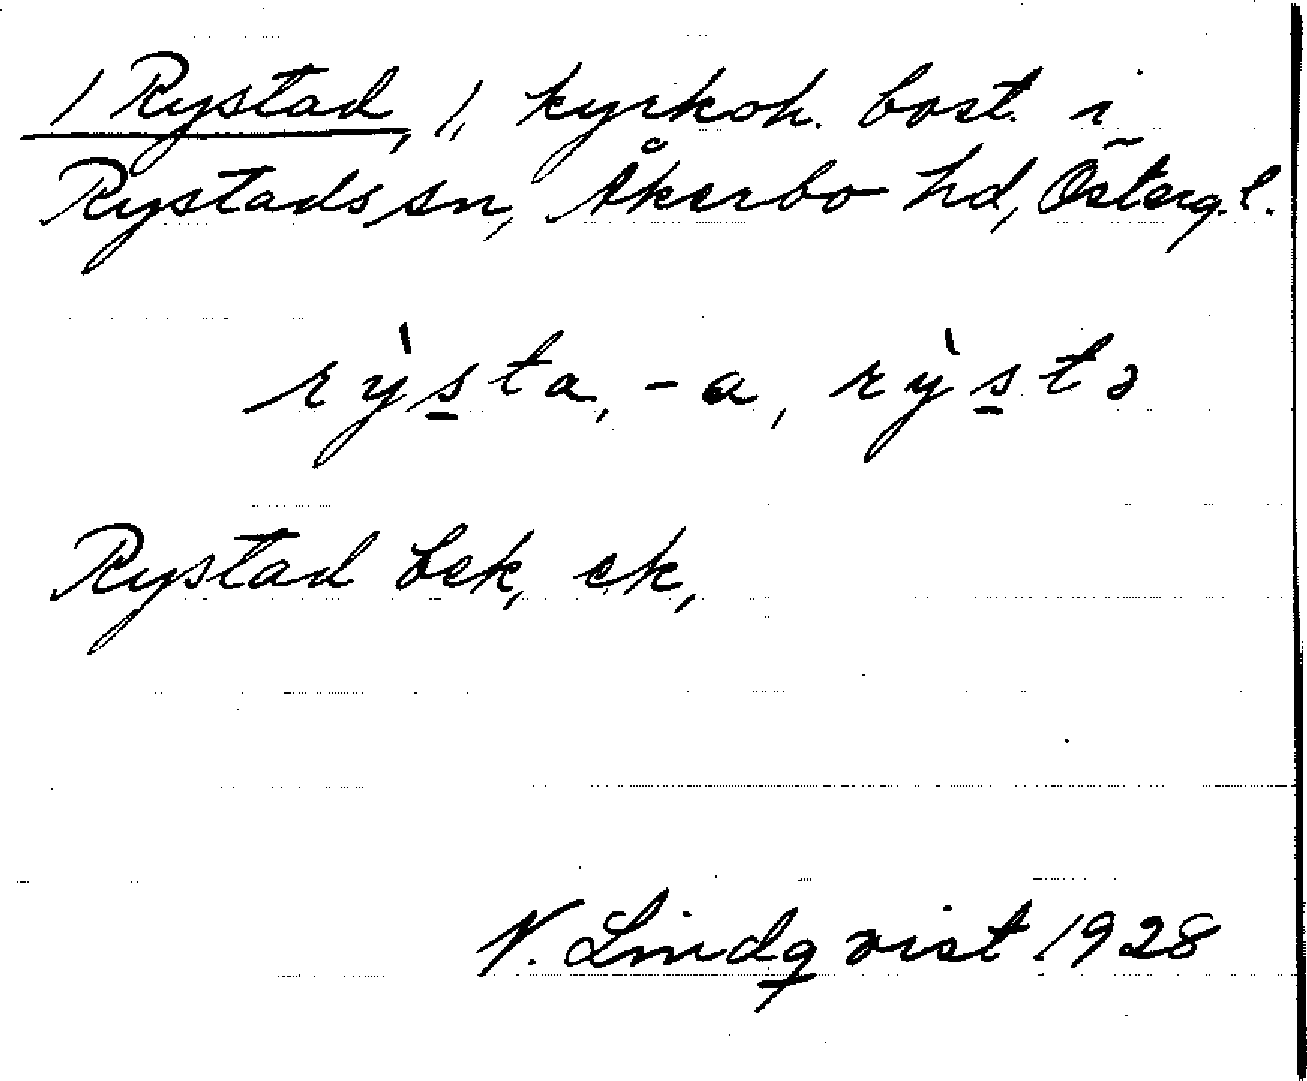 / Rystad, /, kyrkoh. bost. i
Rystads sn, Åkerbo hd, Österg.l.
rỳs̲ta, -a, rỳs̲tə
Rystad bek, ek,
N. Lindqvist 1928